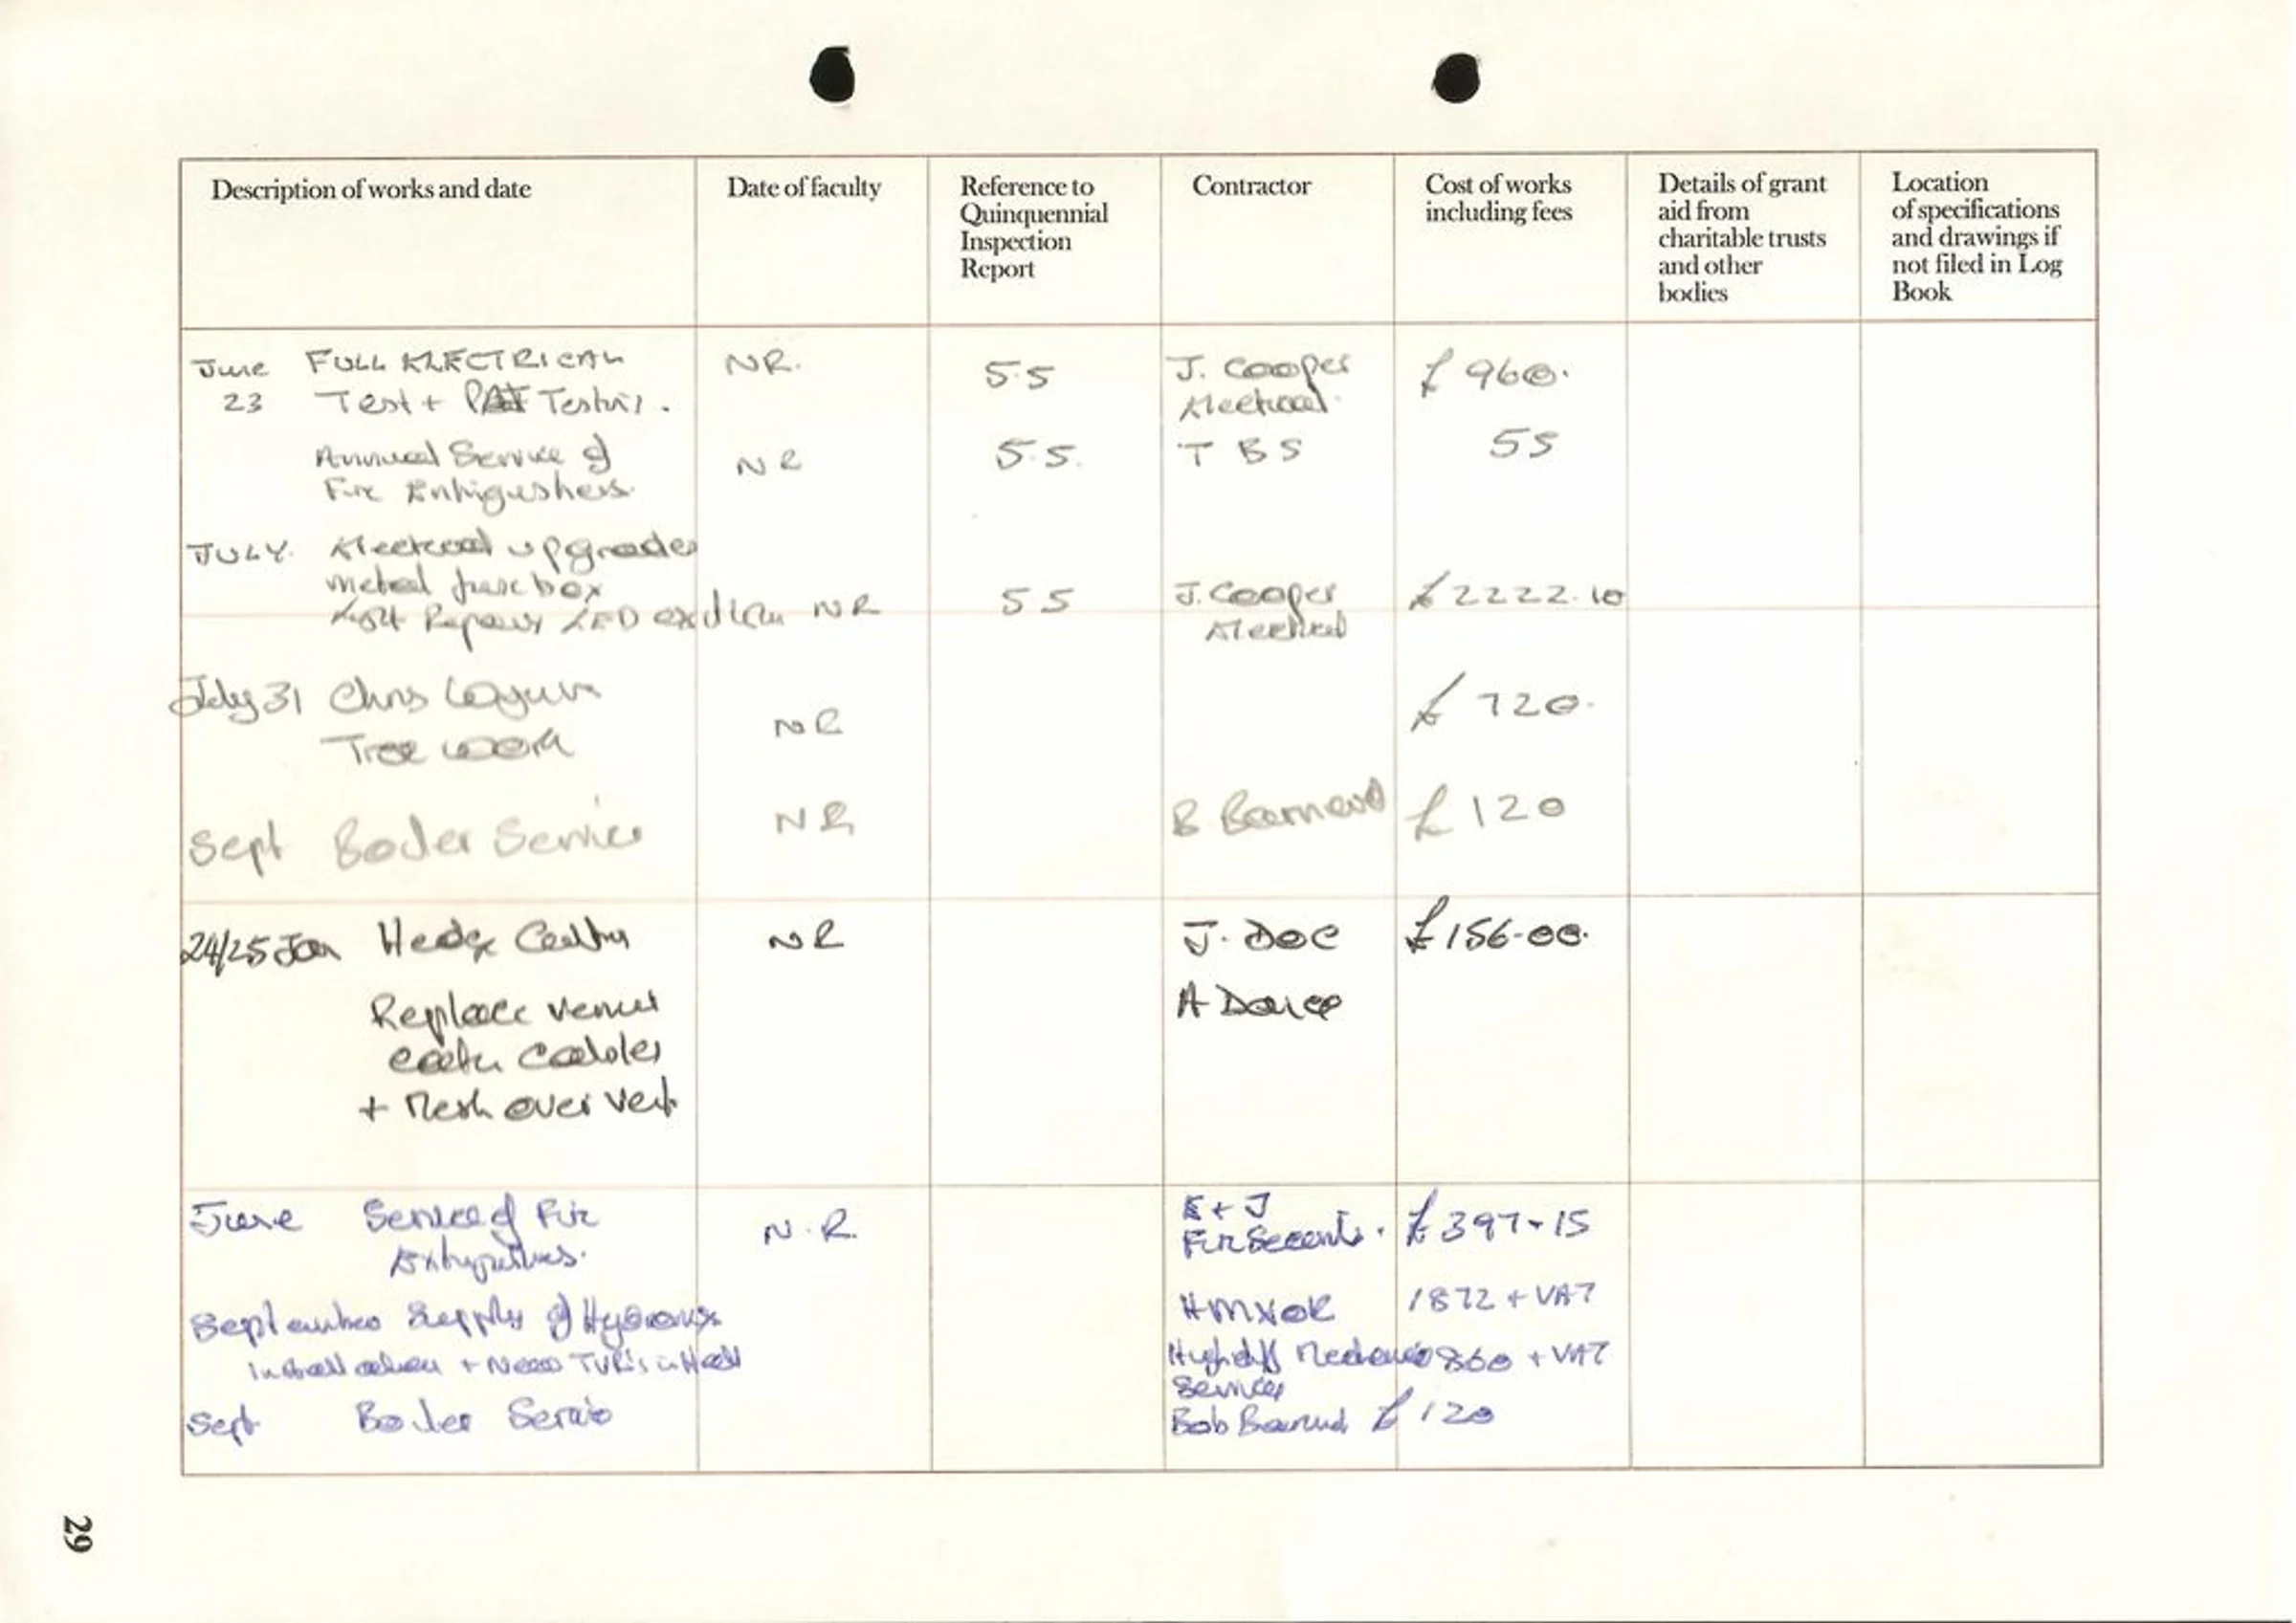 Description of works and date
Date of faculty
Reference to
Quinquennial
Inspection
Report
Contractor
Cost of works
including fees
Details of grant
aid from
charitable trusts
and other
bodies
Location
of specifications
and drawings if
not filed in Log
Book
June FULL ELECTRICAL NR. 5.5 J. Cooper £960.
23 Test + PAT Testing. Electrical.
Annual Service of NR 5.5. TBS 55
Fire Extinguishers.
JULY. Electrical upgrades
metal fuse box J. Cooper £2222.10
Light Repairs LED NR 5 5 Electrical
July 31 Chris £720.
Tree work NR
Sept Boiler Service NR B Barnard £120
24/25 Jan Hedge Cutting NR J. Doe £156-00.
Replace A
earth cables
+ Mesh over vent
June Service of Fire N.R. E + J £397-15
Extinguishers. Fire Security.
September Supply of 1872 + VAT
Installation + New TVR's in Hall 860 + VAT
Services
Sept Boiler Service Bob Barnard £120
29